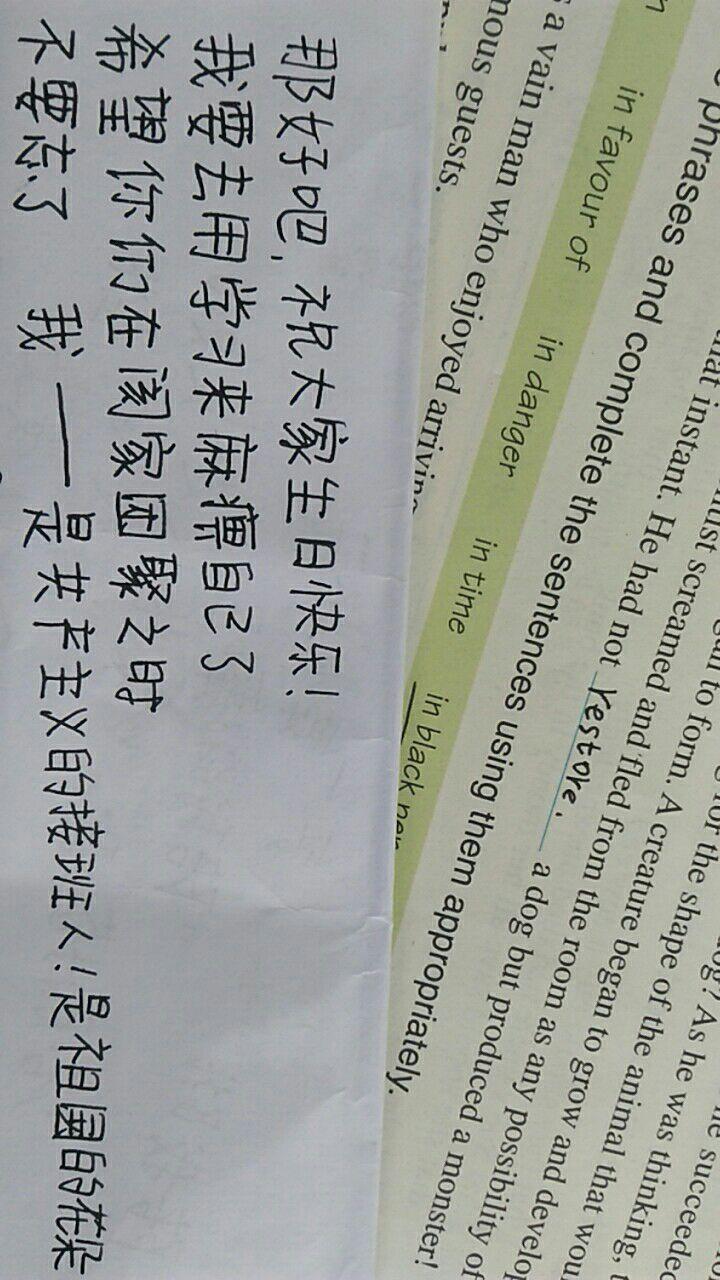 succeeded
? As he was thinking,
for the shape of the animal that
to form. A creature began to grow and
screamed and fled from the room as any possibility of
instant. He had not restore. a dog but produced a monster!
phrases and complete the sentences using them appropriately.
in favour of in danger in time in black
a vain man who enjoyed
guests.
那好吧,祝大家生日快乐!
我要去用学习来麻痹自己了
希望你们在阖家团聚之时
不要忘了 我——是共产主义的接班人!是祖国的花朵